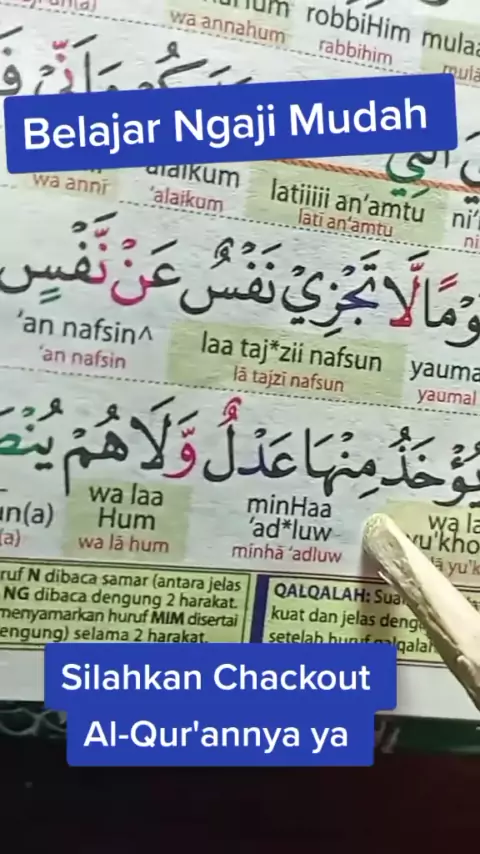 robbiHim
wa annahum rabbihim
Belajar Ngaji Mudah
'alaikum latiiiii an'amtu
wa annī 'alaikum latī an'amtu
لَّا تَجْزِيْ نَفْسٌ عَنْ نَّفْسٍ
'an nafsin^ laa taj*zii nafsun yauma
'an nafsin lā tajzī nafsun yaumal
يُؤْخَذُ مِنْهَا عَدْلٌ وَّلَا هُمْ
wa laa Hum minHaa 'ad*luw
wa lā hum minhā 'adluw
N dibaca samar (antara jelas
NG dibaca dengung 2 harakat.
menyamarkan huruf MIM disertai
selama 2 harakat.
QALQALAH:
kuat dan jelas
setelah huruf
Silahkan Chackout
Al-Qur'annya ya